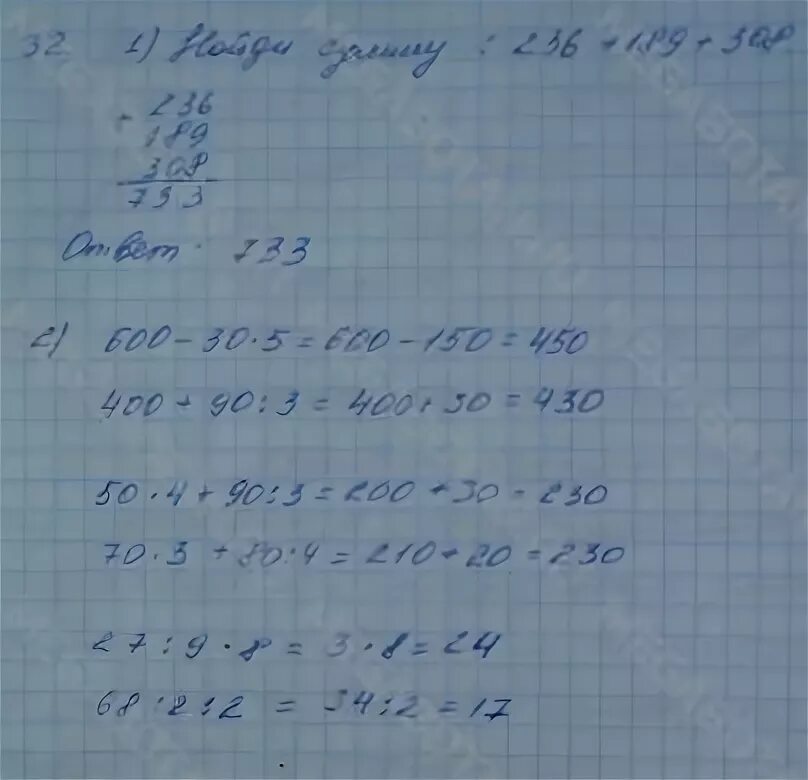 32 1) Найди сумму : 236 + 189 + 308
+ 236
189
308
733
Ответ. 733
2) 600 - 30 · 5 = 600 - 150 = 450
400 + 90 : 3 = 400 + 30 = 430
50 · 4 + 90 : 3 = 200 + 30 = 230
70 · 3 + 80 : 4 = 210 + 20 = 230
27 : 9 · 8 = 3 · 8 = 24
68 : 2 : 2 = 34 : 2 = 17